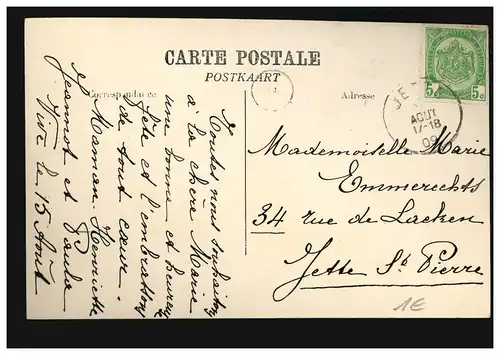 CARTE POSTALE
POSTKAART
Correspondance
Adresse
5 5c
AOUT
17-18
09
Toutes nous souhaitons
à la chère Marie
une bonne et heureuse
fête et l'embrassons
de tout cœur.
Maman Henriette
Jeannot et Paula
Vive le 15 Août
Mademoiselle Marie
Emmerechts
34 rue de Laeken
Jette St Pierre
1E